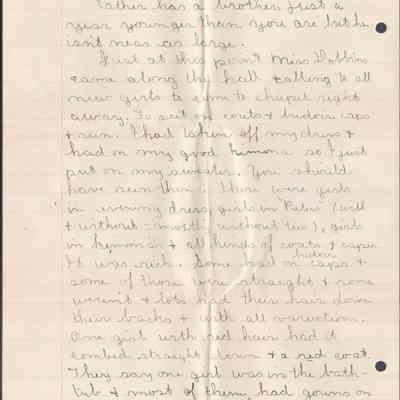 Father has a brother just a
year younger than you are but he
isn't near as large.
Just at this point Miss Dobbins
came along the hall & calling to all
new girls to come to chapel right
away. To put on coats & budoir caps
& run. I had taken off my dress &
had on my good kimona so I just
put on my sweater. You should
have seen them. There were girls
in evening dress, girls in (with
& without - mostly without ties), girls
in kimonas & all kinds of coats & capes
It was rich. Some had on budoir caps &
some of those were straight & some
weren't & lots had their hair down
their backs & with all variations.
One girl with red hair had it
combed straight down & a red coat.
They say one girl was in the bath-
tub & most of them had gowns on